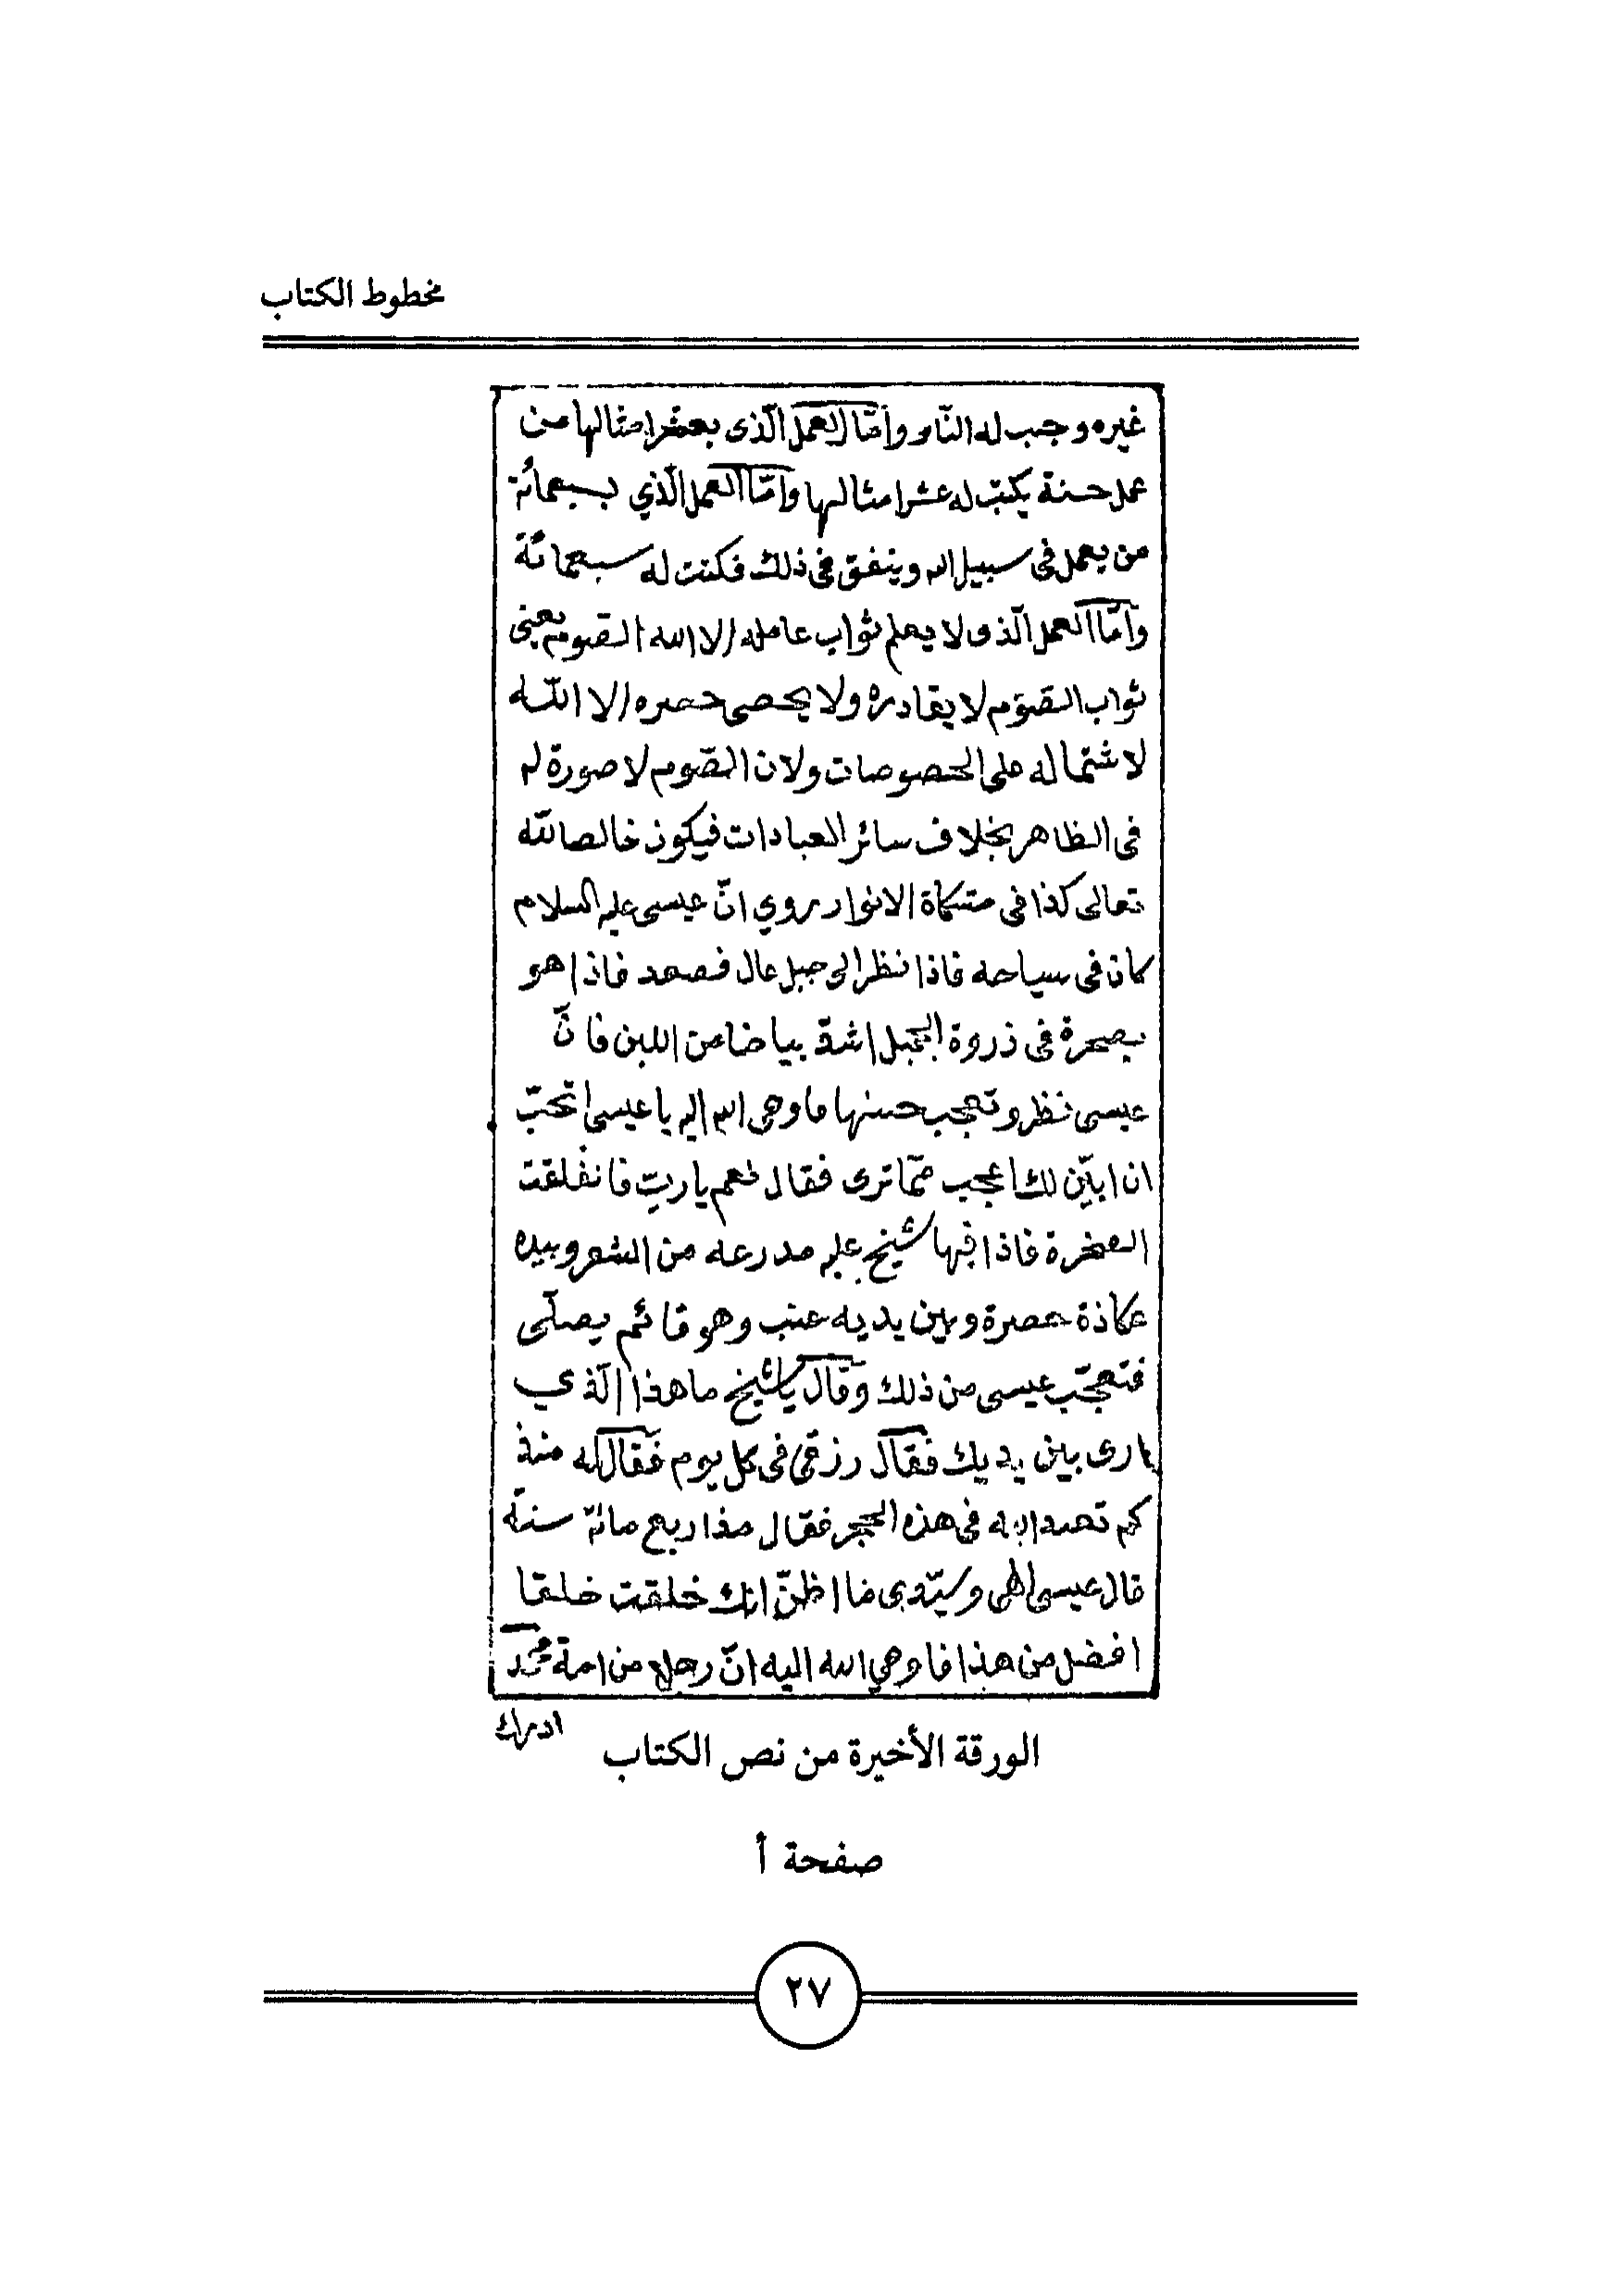 مخطوط الكتاب
غيره وجب له النار وأمّا العمل الّذى بعشر امثالها من
عمل حسنة يكتب له عشر امثالها وأمّا العمل الّذي بسبعمائة
من يعمل فى سبيل الله وينفق فى ذلك فكتبت له سبعمائة
وأمّا العمل الّذى لا يعلم ثواب عامله إلا الله الصّوم يعنى
ثواب الصّوم لا يقادره ولا يحصى حصره إلا الله
لاشتماله على الخصوصات ولان الصّوم لا صورة له
فى الظاهر بخلاف سائر العبادات فيكون خالصا لله
تعالى كذا فى مشكاة الانوار روي انّ عيسى عليه السلام
كان فى سياحه فاذا نظر الى جبل عال فصعد فاذا هو
بصخرة فى ذروة الجبل اشدّ بياضا من اللبن فانّ
عيسى نظر وتعجب حسنها فاوحى الله اليه يا عيسى اتحبّ
ان ابيّن لك اعجب ممّا ترى فقال نعم يا ربّ فانفلقت
الصخرة فاذا فيها شيخ عليه مدرعه من الشعر وبيده
عكاذة خضرة وبين يديه عنب وهو قائم يصلّى
فتعجّب عيسى من ذلك وقال يا شيخ ما هذا الّذي
ارى بين يديك فقال رزقى فى كل يوم فقال له منذ
كم تعبد الله فى هذه الحجر فقال منذ اربع مائة سنة
قال عيسى الهى وسيّدى ما اظنّ انك خلقت خلقا
افضل من هذا فاوحي الله اليه انّ رجلا من امة محمد
ادرك
الورقة الأخيرة من نص الكتاب
صفحة أ
٢٧